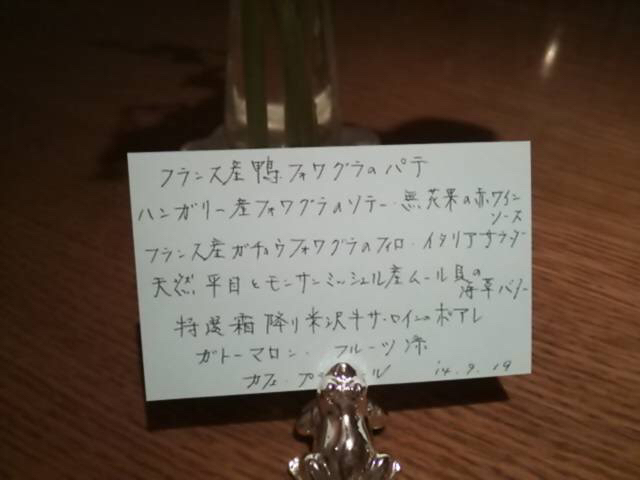 フランス産鴨フォワグラのパテ
ハンガリー産フォワグラのソテー・無花果の赤ワイン
ソース
フランス産ガチョウフォワグラのフィロ・イタリアサラダ
天然平目とモンサンミッシェル産ムール貝の
海草バター
特選霜降り米沢牛サーロインのポアレ
ガトーマロン・フルーツ添
カフェ・
14.9.19